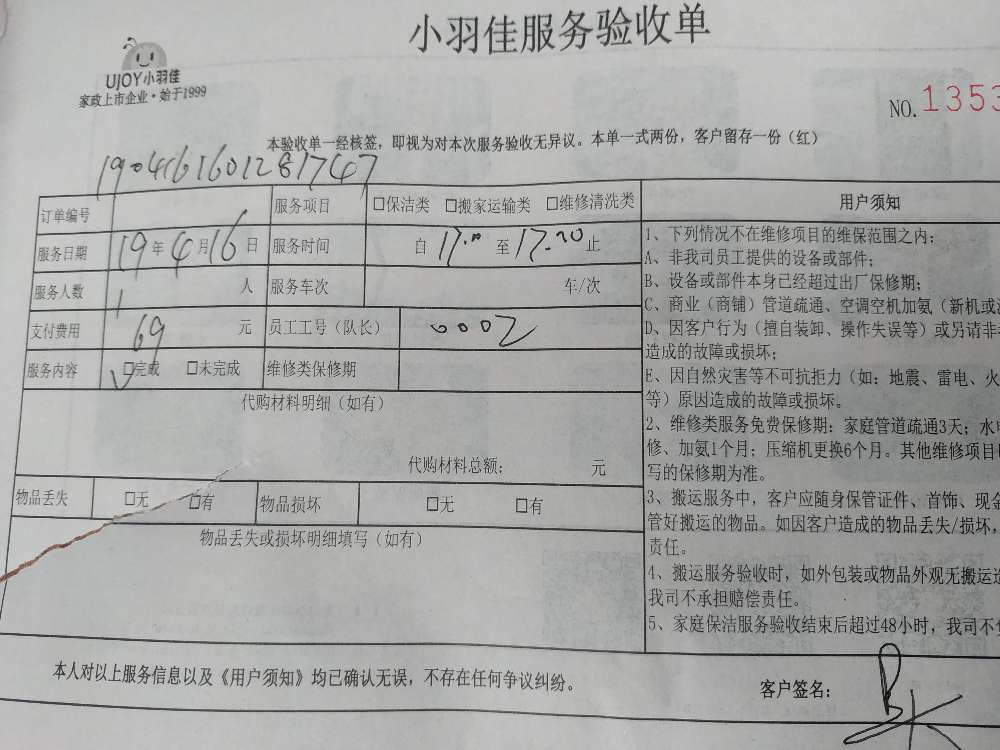 小羽佳服务验收单
UJOY小羽佳
家政上市企业·始于1999
NO.1353
本验收单一经核签，即视为对本次服务验收无异议。本单一式两份，客户留存一份（红）
190416160128 1747
订单编号 服务项目 □保洁类 □搬家运输类 □维修清洗类
服务日期 19年4月16日 服务时间 自17:00至17:20止
服务人数 1人 服务车次 车/次
支付费用 69元 员工工号（队长） 0002
服务内容 □完成 □未完成 维修类保修期
代购材料明细（如有）
代购材料总额： 元
物品丢失 □无 □有 物品损坏 □无 □有
物品丢失或损坏明细填写（如有）
用户须知
1、下列情况不在维修项目的维保范围之内：
A、非我司员工提供的设备或部件；
B、设备或部件本身已经超过出厂保修期；
C、商业（商铺）管道疏通、空调空机加氨（新机或
D、因客户行为（擅自装卸、操作失误等）或另请非
造成的故障或损坏；
E、因自然灾害等不可抗拒力（如：地震、雷电、火
等）原因造成的故障或损坏。
2、维修类服务免费保修期：家庭管道疏通3天；水电
修、加氨1个月；压缩机更换6个月。其他维修项目
写的保修期为准。
3、搬运服务中，客户应随身保管证件、首饰、现金
管好搬运的物品。如因客户造成的物品丢失/损坏，
责任。
4、搬运服务验收时，如外包装或物品外观无搬运造
我司不承担赔偿责任。
5、家庭保洁服务验收结束后超过48小时，我司不
本人对以上服务信息以及《用户须知》均已确认无误，不存在任何争议纠纷。
客户签名：